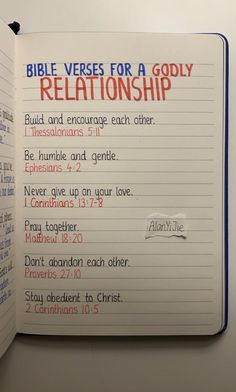 BIBLE VERSES FOR A GODLY
RELATIONSHIP
Build and encourage each other.
1 Thessalonians 5:11
Be humble and gentle.
Ephesians 4:2
Never give up on your love.
1 Corinthians 13:7-8
Pray together.
Matthew 18:20
AlanYiJie
Don't abandon each other.
Proverbs 27:10
Stay obedient to Christ.
2 Corinthians 10:5